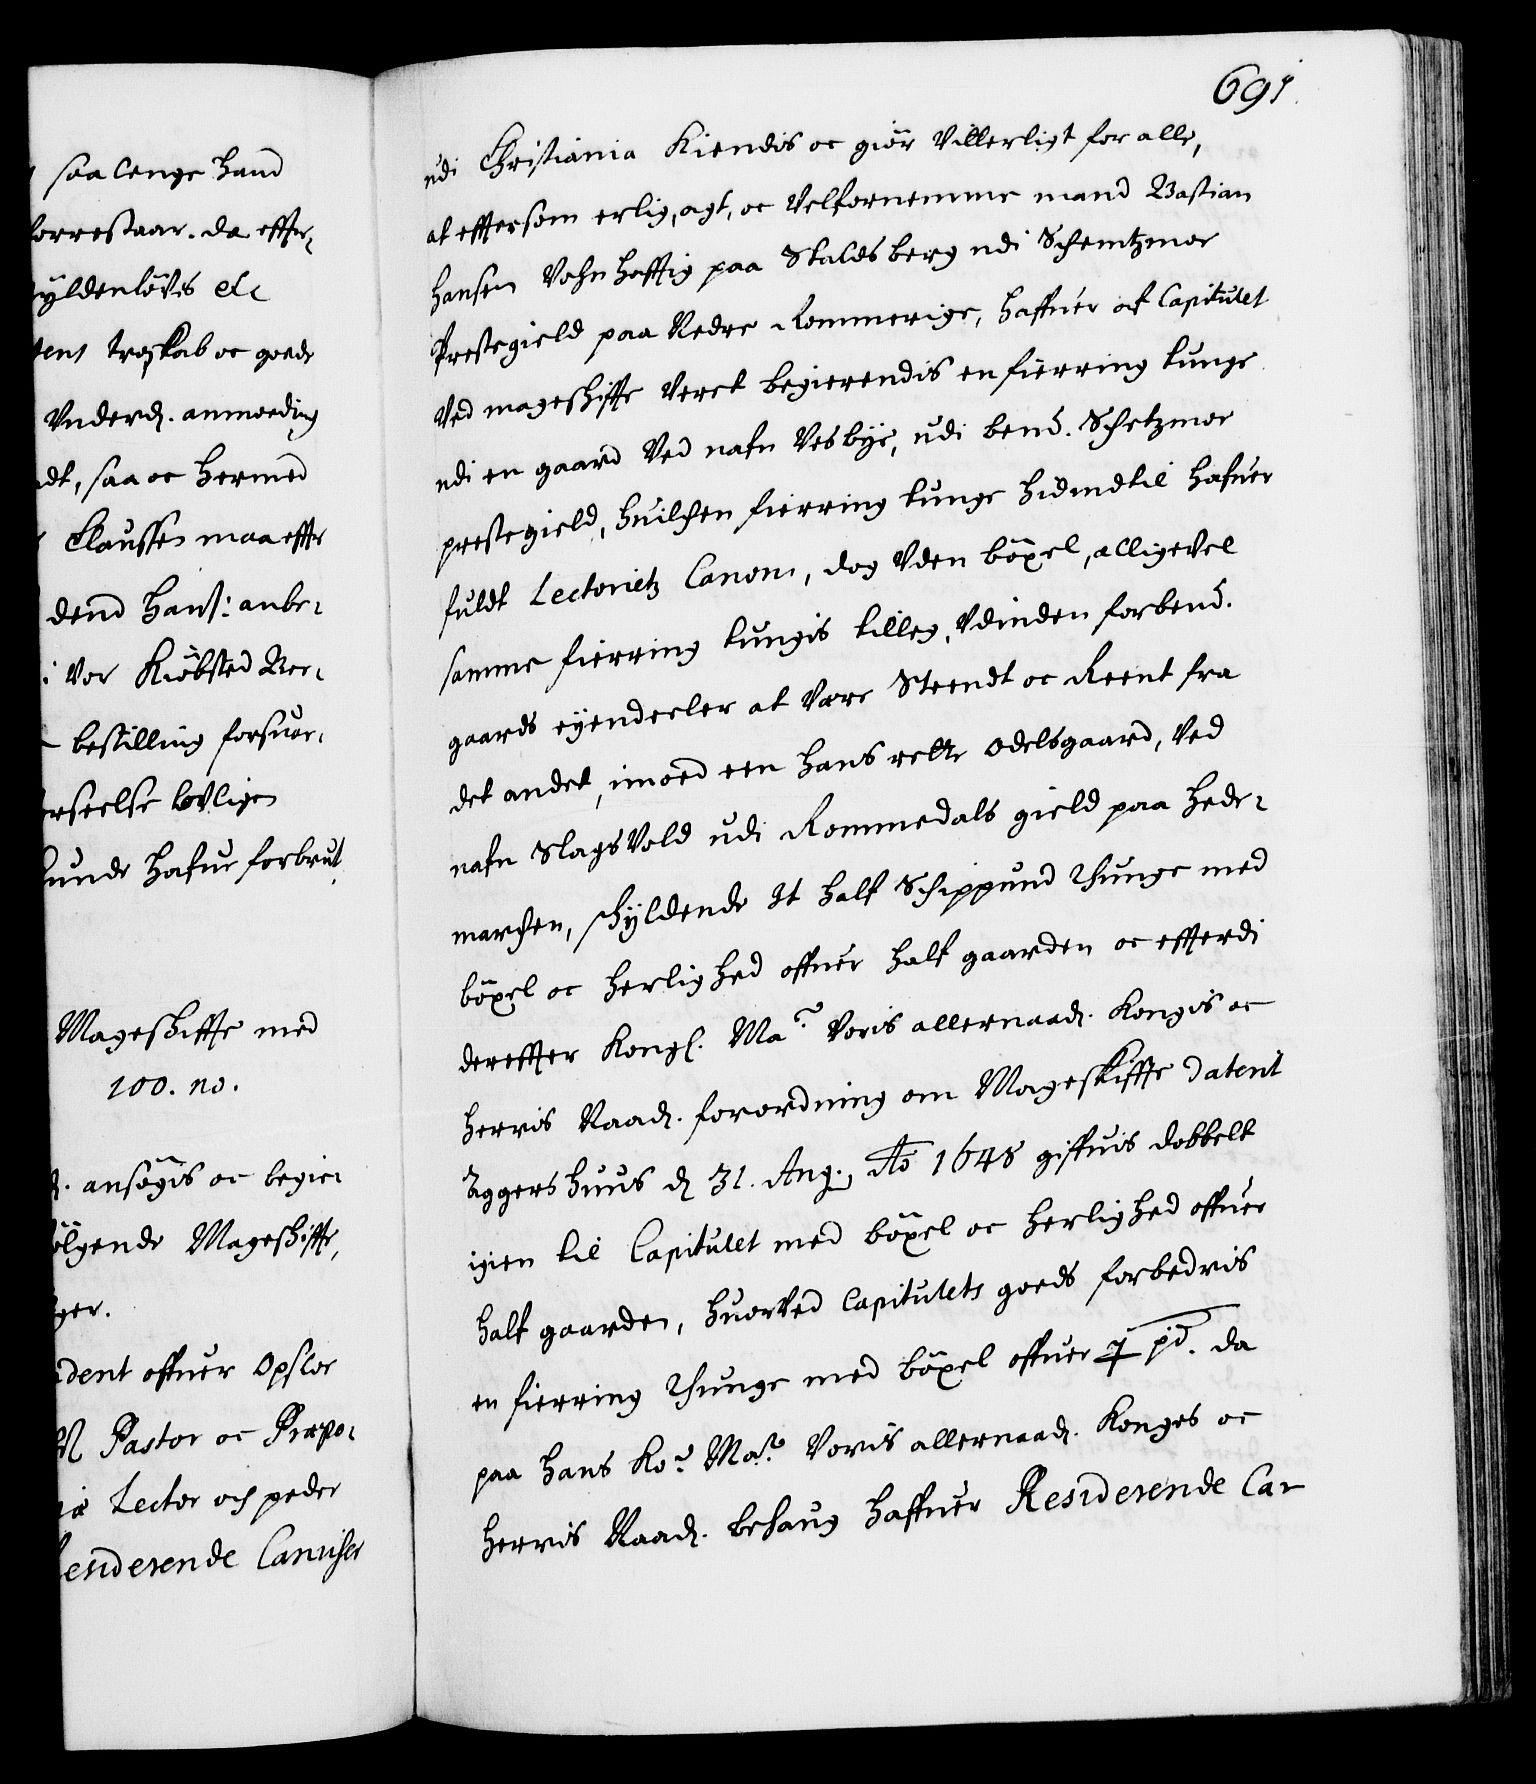 saa lenge hand
forrestaar. da effter,
yldenlöves etc
troskab oc goede
Underd. anmoeding
dt, saa oc hermed
Claussen maa effter
dend hans: anbe,
vor Kiöbsted Ber,
bestilling forsuar,
erseelse lovligen
kunde hafue forbrut
Mageskiffte med
100. no.
ansögis oc begie,
ölgende Mageskiffte,
ger.
dent offuer Opsloe
Pastor oc Præpo,
Lector och peder
esiderende Canicker
691.
udi Christiania Kiendis oc giör Vitterligt for alle,
at effttersom erlig, agt, oc Velfornemme mand Bastian
Hansen Vohnhafftig paa Skaldsberg udi Schemtzmoe
Prestegield paa Nedre Rommerige, haffuer af Capitulet
Ved mageskiffte Veret begierendis en fierring tunge
udi en gaard Ved nafn Vesbye, udi bend. Schetzmoe
prestegield, huilchen fierring tunge hidindtil hafuer
fuldt Lectorietz Canoni, dog Uden böxel, alligevel
samme fierring tungis tilleg, Udinden forbend.
gaards eyendeeler at Være Steendt oc Reent fra
det andet, imoed een hans rette Odelsgaard, Ved
nafn Slagsvold udi Rommedals gield paa Hede,
marchen, schyldende It half Schippund Thunge med
böxel oc herlighed offuer half gaarden oc effterdi
dereffter Kongl. Ma. Voris allernaad. Kongis oc
Herris Naad. forordning om Mageskiffte datent
Aggershuus d 31. Aug. Ao 1648 giffuis dobbelt
igien til Capitulet med böxel oc herlighed offuer
half gaarden, huorVed Capitulets goeds forbedris
en fierring Thunge med böxel offuer pd. da
paa Hans Ko. Ma. Voris allernaad. Konges oc
Herris Naad. behaug haffuer Residerende Ca-